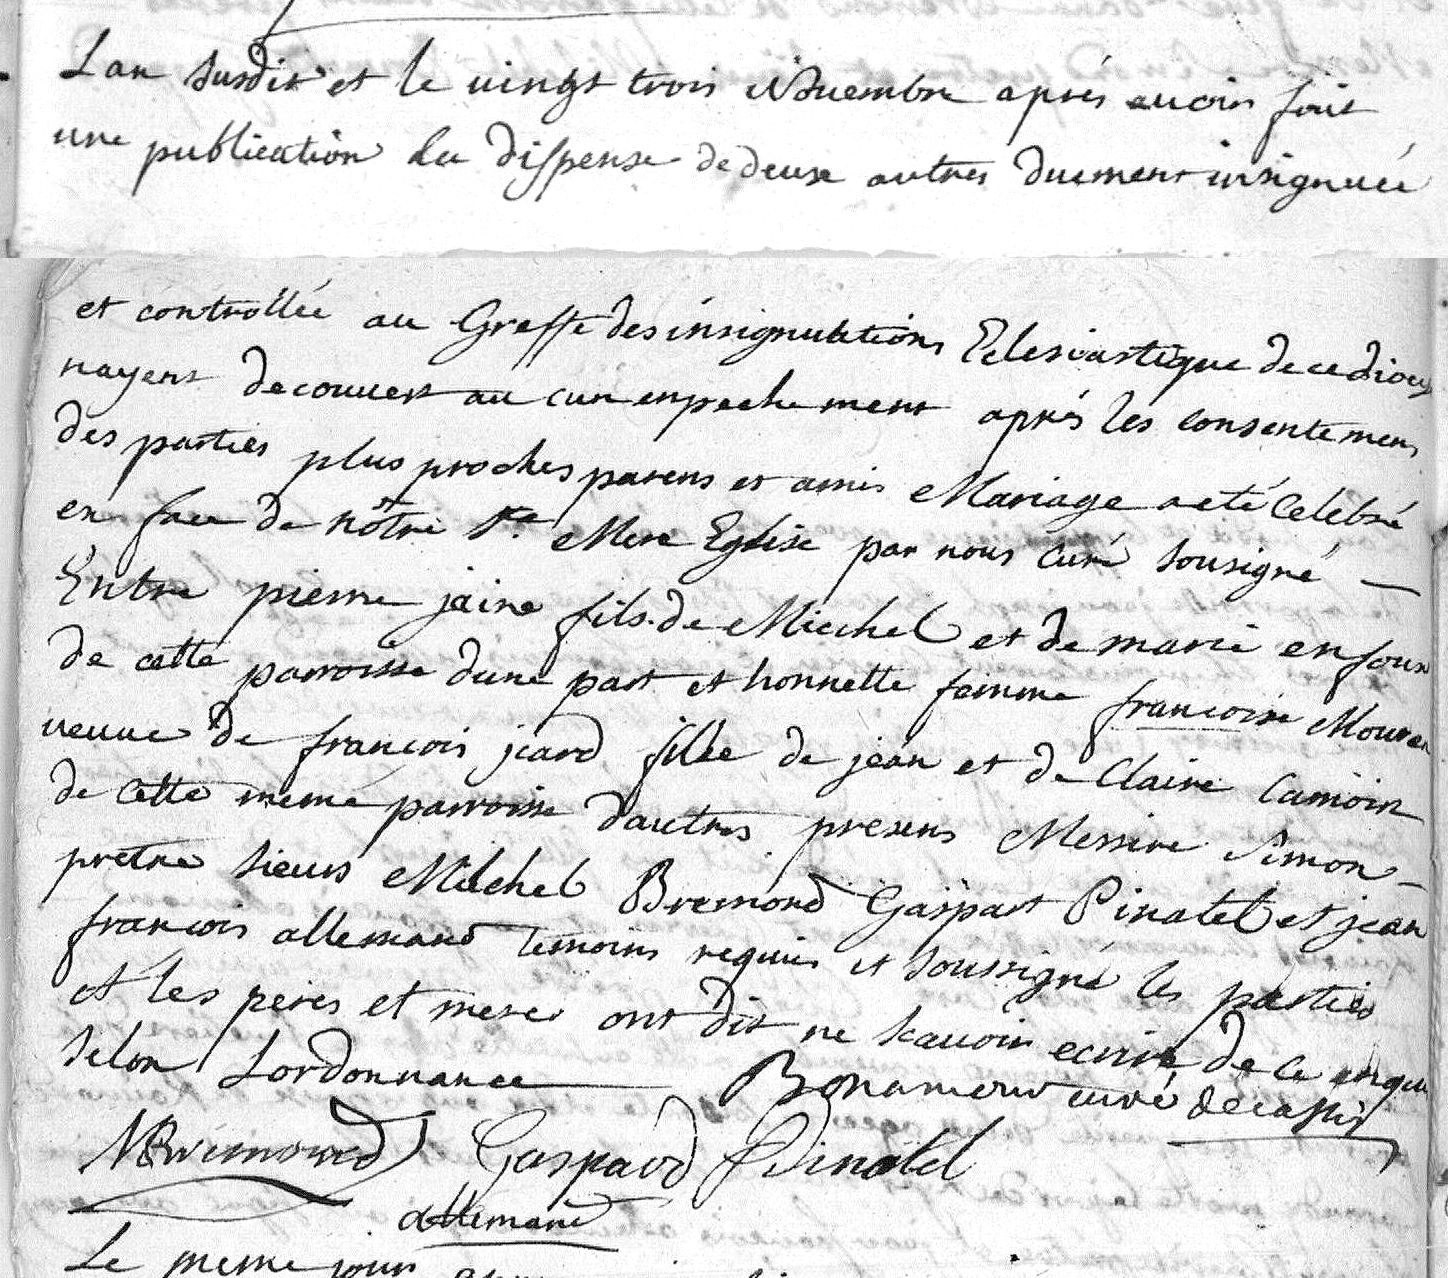 Lan susdit et le vingt trois Novembre aprés avoir fait
une publication la dispense de deux autres duement insignuée
et controllée au Greffe des insignuations Eclesiastique de ce
nayent decouvert au cun enpechement aprés les consentemens
des parties plus proches parens et amis Mariage a eté Celebré
en face de nôtre Ste Mere Eglise par nous curé sousigné —
Entre pierre jaine fils de Michel et de marie enfoux
de cette parroisse dune part et honnette femme francoise Mouren
veuve de francois jcard fille de jean et de Claire Camoin
de cette meme parroisse dautres presens Messire Simon —
pretre sieurs Michel Bremond Gaspart Pinatel et jean
francois allemand temoins requis et soussigné les parties
et les peres et mere ont dit ne scavoir ecrire de ce enqui
selon Lordonnance Bonameur curé de cassis
MBremond Gaspard Pinatel
allemand
Le meme jour